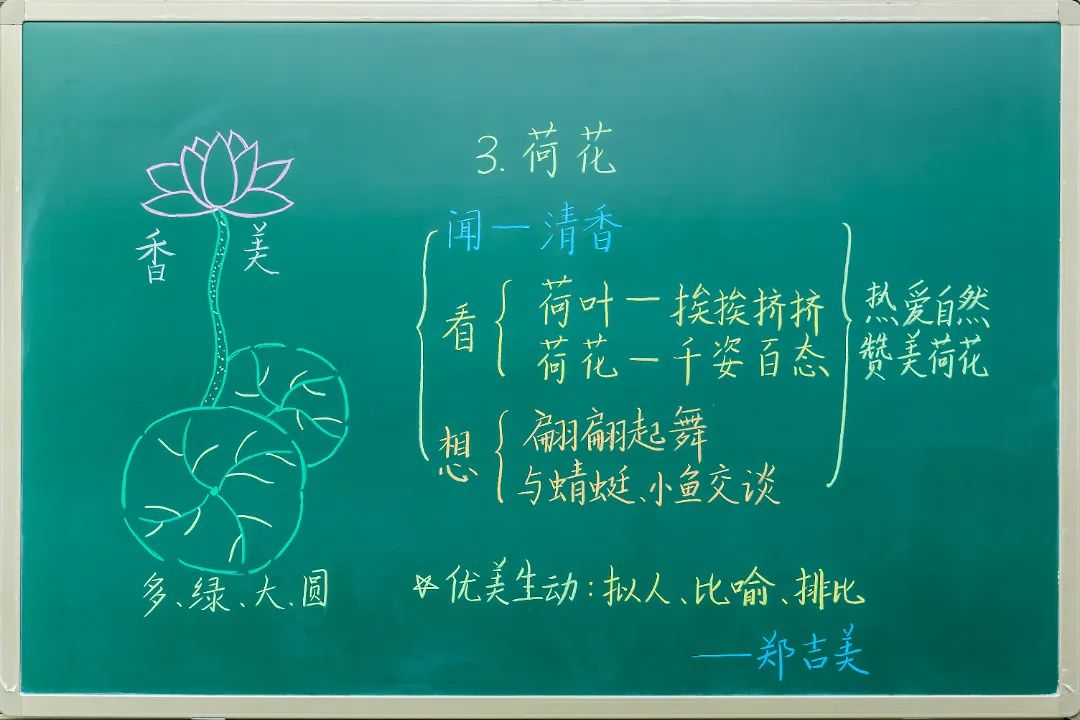 3.荷花
香 美
闻一清香
看
荷叶一挨挨挤挤
荷花一千姿百态
想
翩翩起舞
与蜻蜓、小鱼交谈
热爱自然
赞美荷花
多、绿、大、圆
☆优美生动:拟人、比喻、排比
——郑吉美